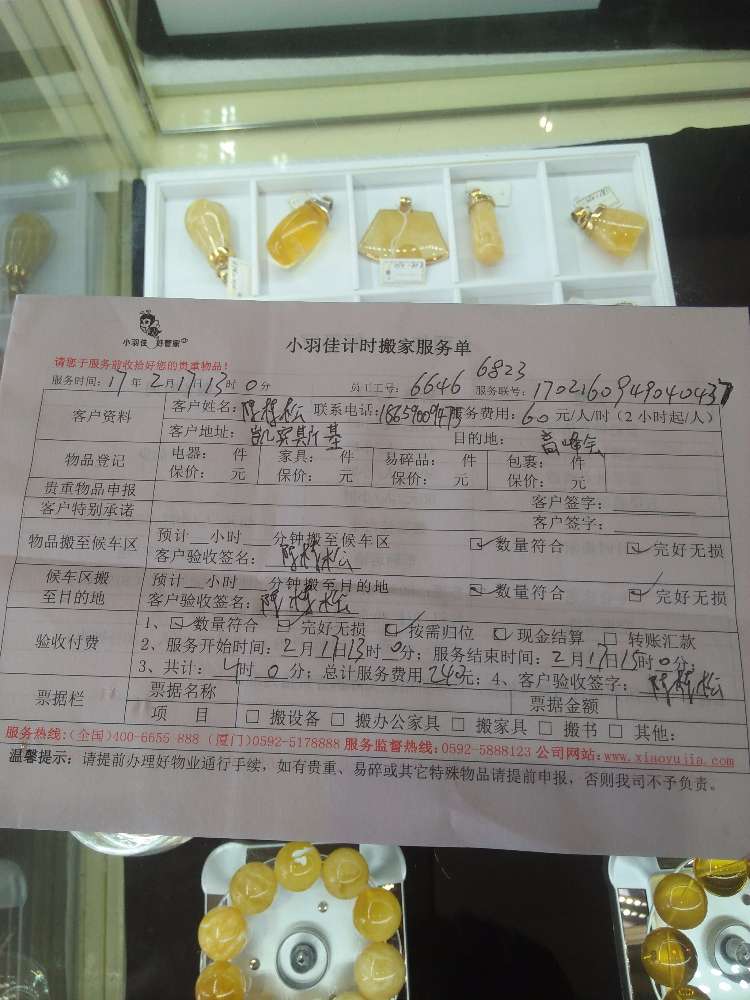 小羽佳 好管家
小羽佳计时搬家服务单
请您于服务前收拾好您的贵重物品!
6823
服务时间: 17年2月17日13时0分 员工工号: 6646 服务联号: 1702160949040437
客户资料 客户姓名: 联系电话: 服务费用: 60元/人/时(2小时起/人)
客户地址: 凯宾斯基 目的地: 高峰会
物品登记 电器: 件 家具: 件 易碎品: 件 包裹: 件
保价: 元 保价: 元 保价: 元 保价: 元
贵重物品申报 客户签字:
客户特别承诺 客户签字:
物品搬至候车区 预计 小时 分钟搬至候车区 数量符合 完好无损
客户验收签名:
候车区搬至目的地 预计 小时 分钟搬至目的地 数量符合 完好无损
客户验收签名:
验收付费 1、数量符合 完好无损 按需归位 现金结算 转账汇款
2、服务开始时间: 2月17日13时0分; 服务结束时间: 2月17日15时0分;
3、共计: 4时0分; 总计服务费用240元; 4、客户验收签字:
票据栏 票据名称 票据金额
项 目 搬设备 搬办公家具 搬家具 搬书 其他:
服务热线:(全国)400-6655 888 (厦门)0592-5178888 服务监督热线:0592-5888123 公司网站:www.xiaoyujia.com
温馨提示: 请提前办理好物业通行手续, 如有贵重、易碎或其它特殊物品请提前申报, 否则我司不予负责。